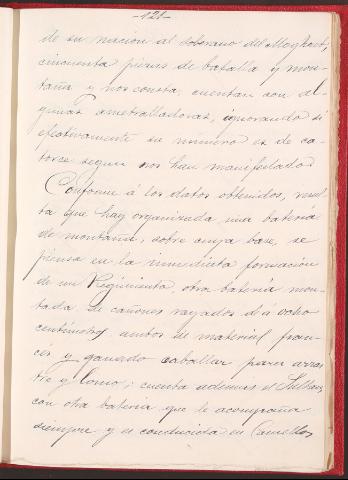 -121-
de su nacion al soberano del Moghreb,
cincuenta piezas de batalla y mon-
taña y nos consta, cuentan con al-
gunas ametralladoras, ignorando si
efectivamente su número es de ca-
torce segun nos han manifestado
Conforme á los datos obtenidos, resul-
ta que hay organizada una bateria
de montaña, sobre cuya base, se
piensa en la inmediata formacion
de un Regimiento, otra bateria mon-
tada de cañones rayados d á ocho
centímetros, ambos de material fran-
cés y ganado caballar para arras-
tre y lomo; cuenta ademas el Sultan
con otra bateria que le acompaña
siempre y es conducida en Camellos